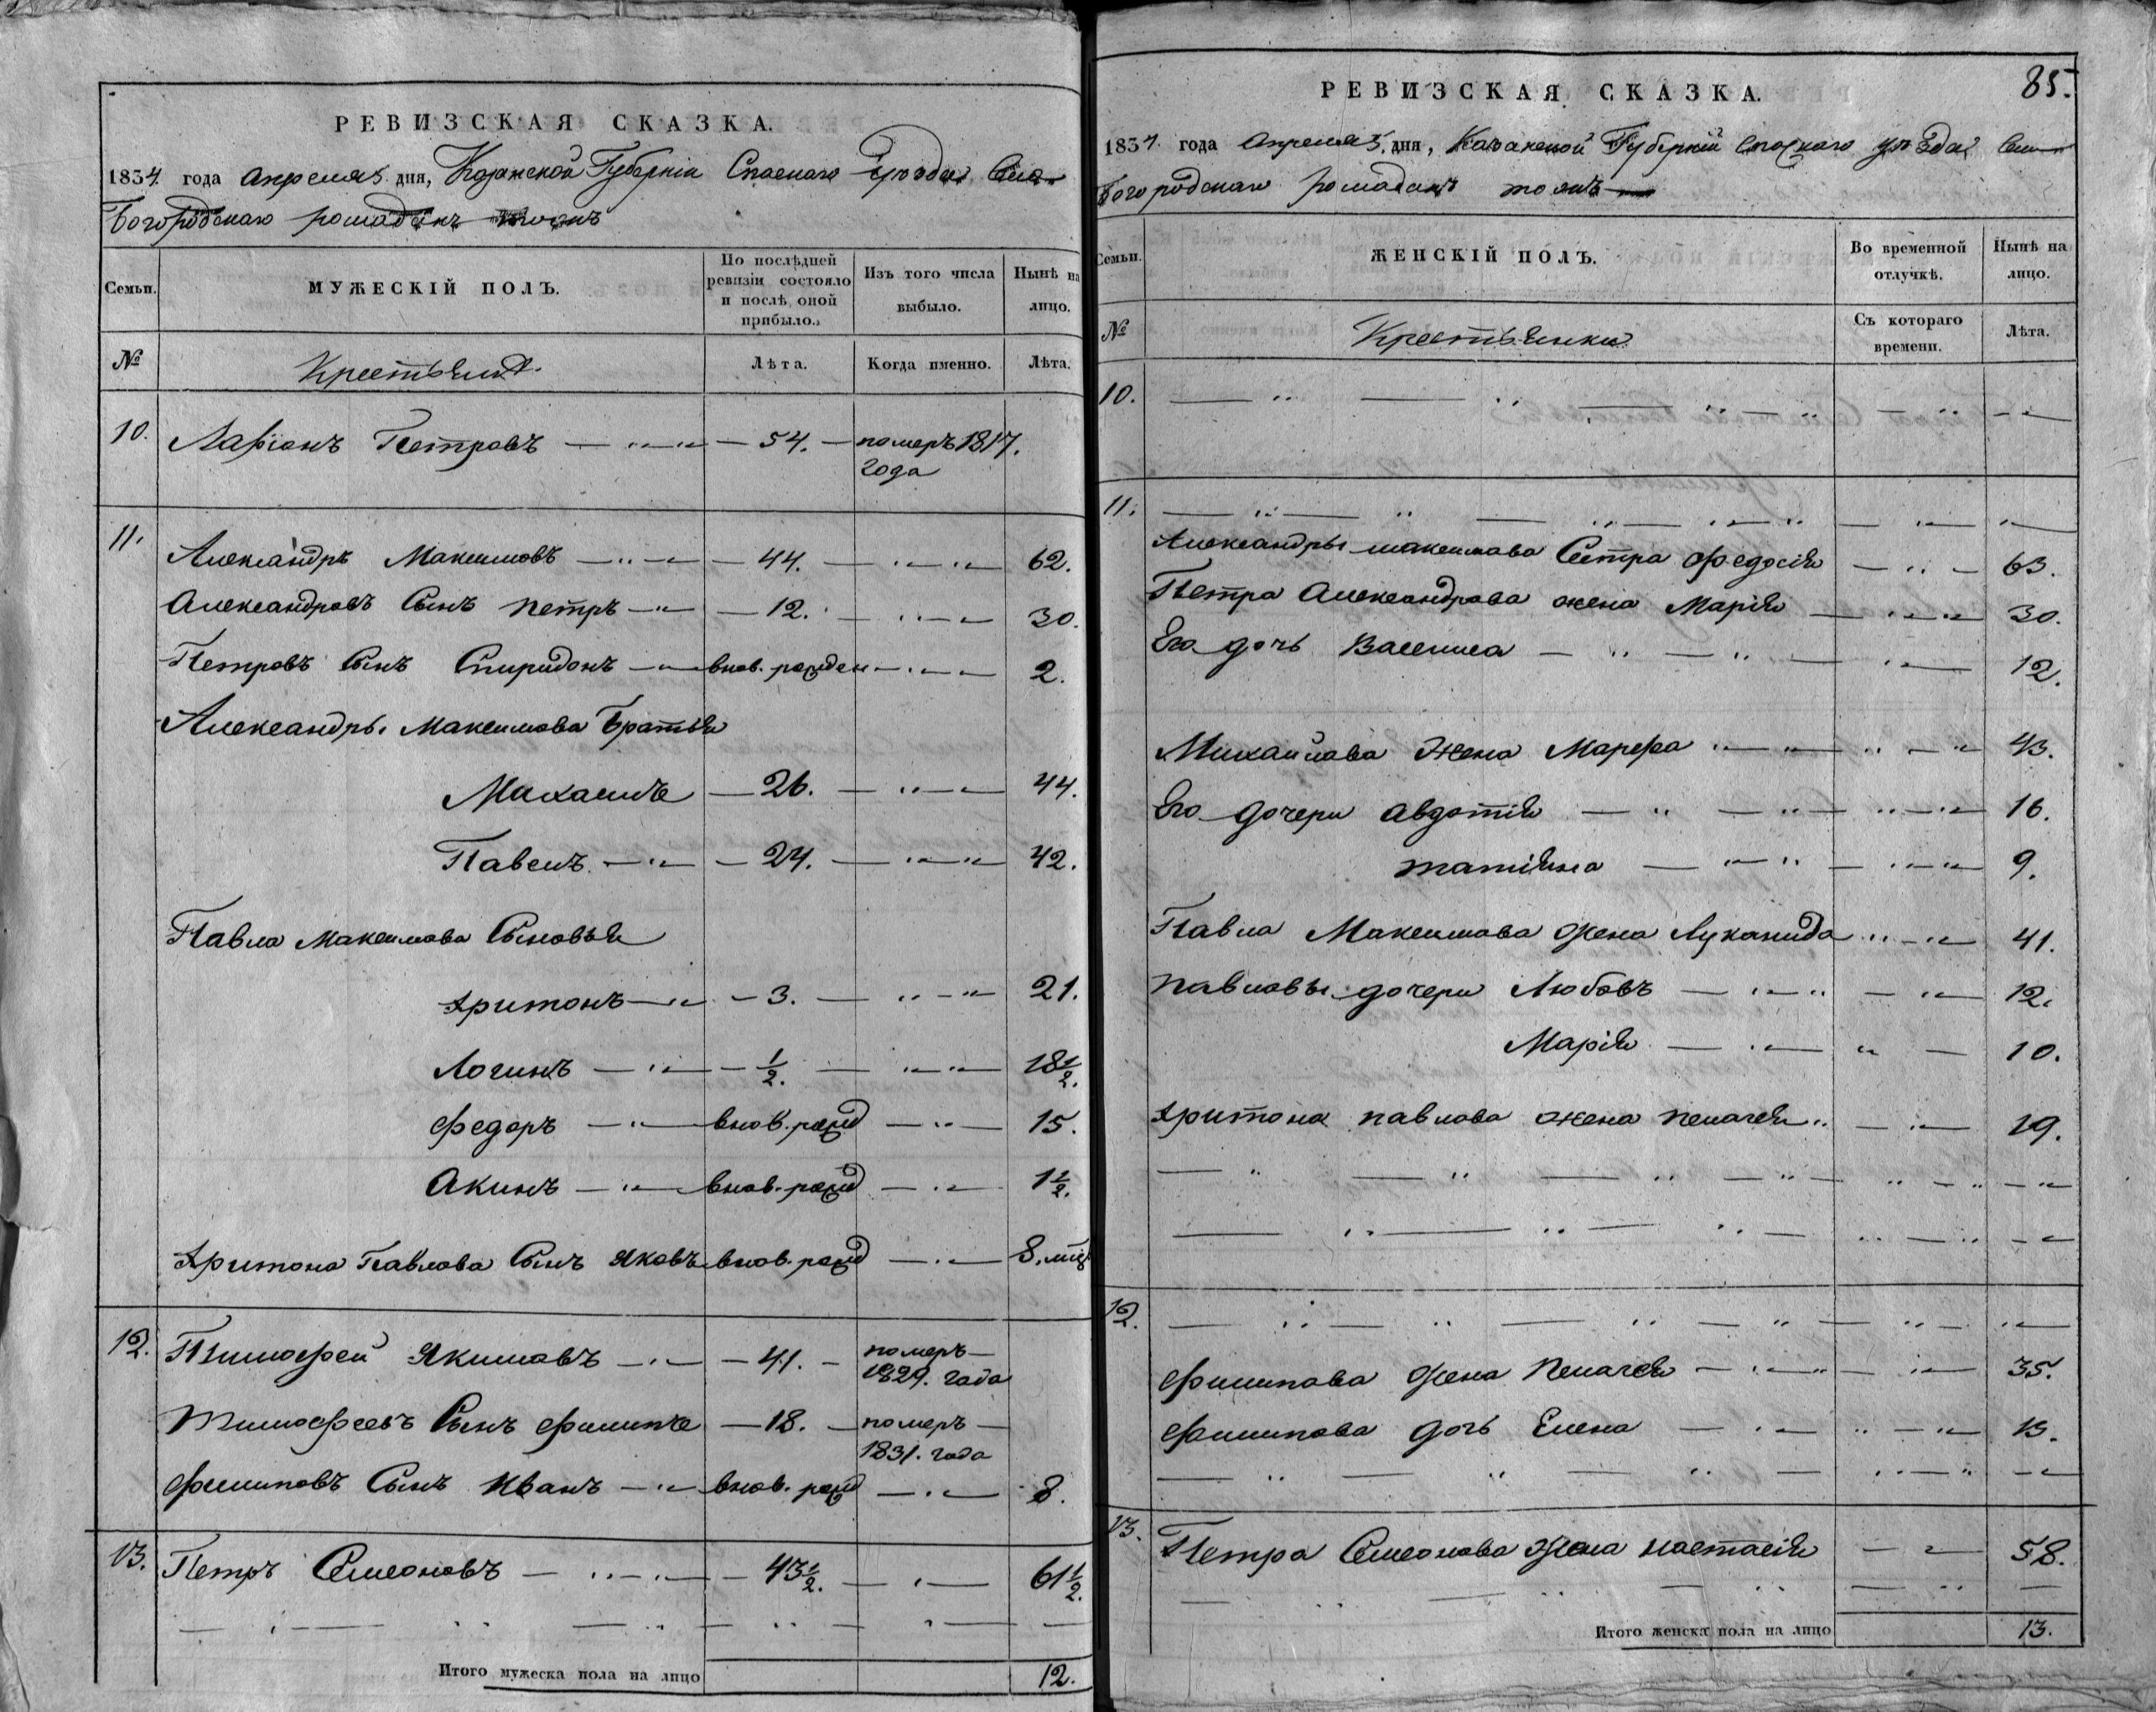 РЕВИЗСКАЯ СКАЗКА.
1834. года апреля 5. дня, Казанской Губернiи Спаскаго Уѣзда Села
Богородскаго Ромаданъ тожъ
Семьи. МУЖЕСКІЙ ПОЛЪ. По послѣдней ревизіи состояло и послѣ оной прибыло. Изъ того числа выбыло. Нынѣ на лицо.
№ Крестьяне. Лѣта. Когда именно. Лѣта.
10. Ларiонъ Петровъ 54. померъ 1817.
года
11.
Александръ Максимовъ 44. 62.
Александровъ Сынъ Петръ 12. 30.
Петровъ Сынъ Спиридонъ внов. рожден 2.
Александры Максимова Братья
Михаилъ 26. 44.
Павелъ 24. 42.
Павла Максимова Сыновья
Хритонъ 3. 21.
Логинъ 1/2. 18 1/2.
Федоръ внов. рожд 15.
Акимъ внов. рожд 1 1/2.
Хритона Павлова Сынъ Яковъ внов. рожд 8. мцъ
12. Тимофей Якимовъ 41. померъ
1829. года
Тимофеевъ Сынъ Филипъ 18. померъ
1831. года
Филиповъ Сынъ Иванъ внов. рожд 8.
13. Петръ Семеоновъ 43 1/2. 61 1/2.
Итого мужеска пола на лицо 12.
85.
РЕВИЗСКАЯ СКАЗКА.
1834. года Апреля 5. дня, Казанской Губернiй Спаскаго уѣзда Села
Богородскаго Ромаданъ тожъ
Семьи. ЖЕНСКІЙ ПОЛЪ. Во временной отлучкѣ. Нынѣ на лицо.
№ Крестьянки Съ котораго времени. Лѣта.
10.
11.
Александры Максимова Сестра Федосiя 63.
Петра Александрова жена Марiя 30.
Его дочь Василиса 12.
Михайлова Жена Марфа 43.
Его дочери Авдотiя 16.
татiяна 9.
Павла Максимова жена Луканида 41.
Павловы дочери Любовъ 12.
Марiя 10.
Хритона павлова жена пелагея 19.
12.
Филипова жена Пелагея 35.
Филипова дочь Елена 13.
13. Петра Семеонова жена настасiя 58.
Итого женска пола на лицо 13.